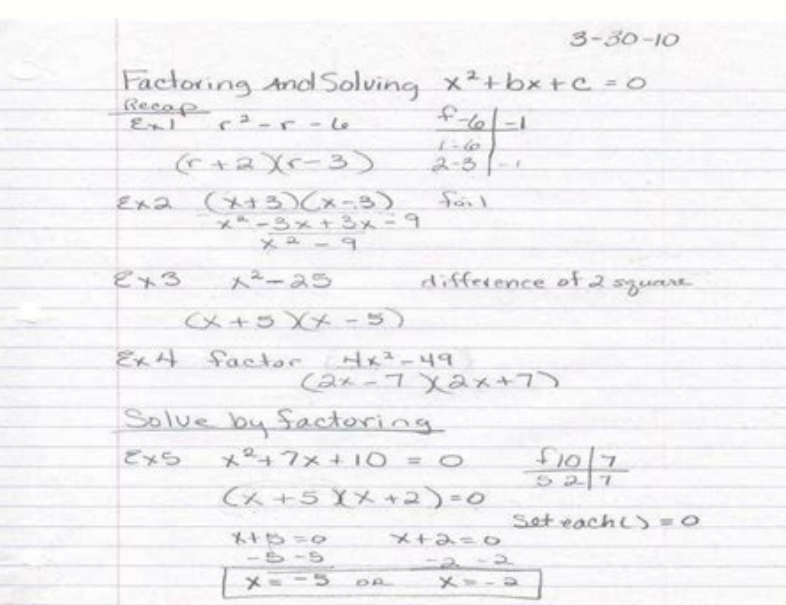 3-30-10
Factoring And Solving x²+bx+c = 0
Recap
Ex1 r² - r - 6 f-6 | -1
1-6
(r+2)(r-3) 2-3 | -1
Ex2 (x+3)(x-3) foil
x² - 3x + 3x - 9
x² - 9
Ex3 x² - 25 difference of 2 square
(x+5)(x-5)
Ex4 factor 4x² - 49
(2x-7)(2x+7)
Solve by factoring
Ex5 x²+7x+10 = 0 f10 | 7
5 2 | 7
(x+5)(x+2)=0
Set each ( ) = 0
x+5=0 x+2=0
-5 -5 -2 -2
x = -5 OR x = -2